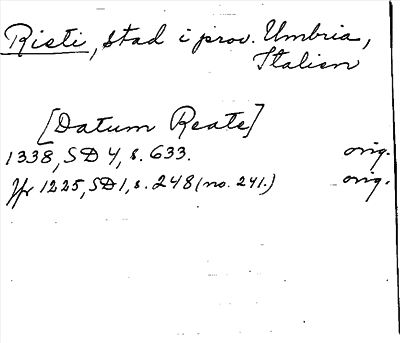 Risti, stad i prov. Umbria,
Italien
[Datum Reate]
1338, SD 4, s. 633. orig.
Jfr 1225, SD 1, s. 248 (no. 241.) orig.